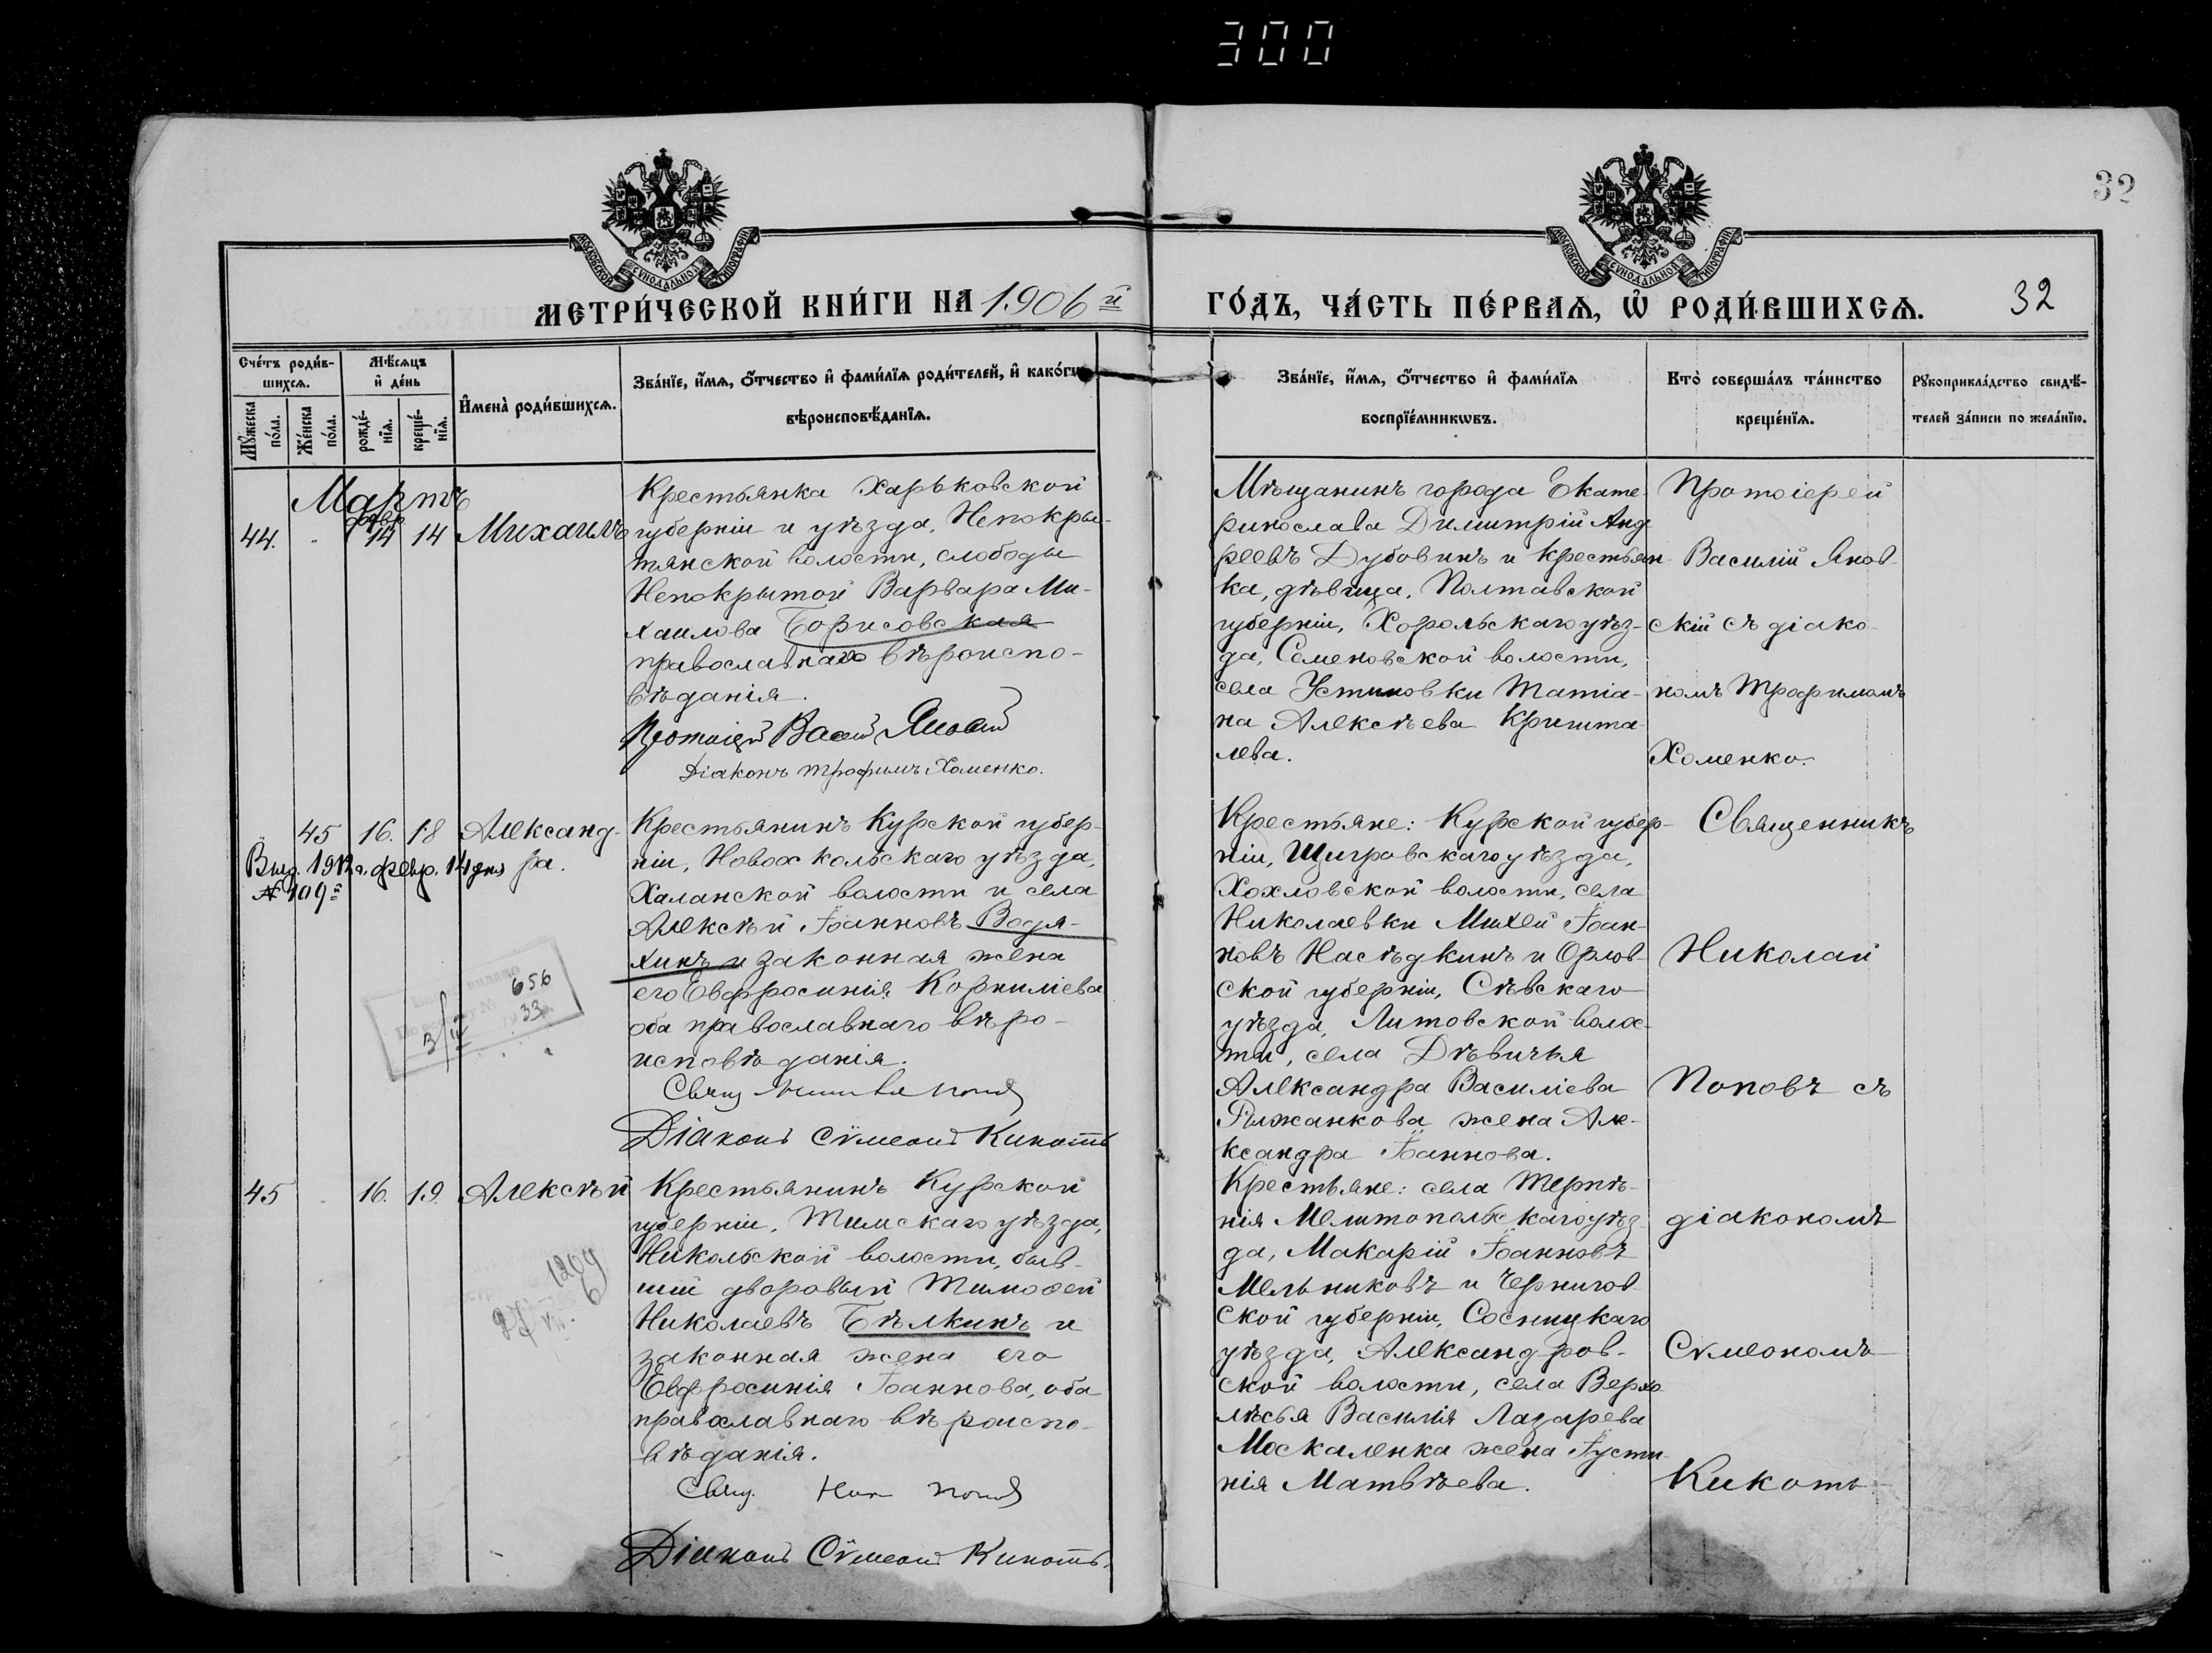 300
32
МОСКОВСКОЙ СѴНОДАЛЬНОЙ ТИПОГРАФІИ
МОСКОВСКОЙ СѴНОДАЛЬНОЙ ТИПОГРАФІИ
МЕТРИ́ЧЕСКОЙ КНИ́ГИ НА 1906й
ГО́ДЪ, ЧА́СТЬ ПЕ́РВАѦ, Ѡ҆ РОДИ́ВШИХСѦ.
32
Сче́тъ роди́в-
шихсѧ.
Мꙋ́жеска по́ла.
Же́нска по́ла.
Мѣ́сѧцъ
и҆ де́нь
рожде́-
нїѧ.
креще́-
нїѧ.
И҆мена̀ роди́вшихсѧ.
Зва́нїе, и҆́мѧ, ѻ҆́тчество и҆ фами́лїѧ роди́телей, и҆ како́гѡ
вѣроисповѣ́данїѧ.
Зва́нїе, и҆́мѧ, ѻ҆́тчество и҆ фами́лїѧ
воспрїе́мникѡвъ.
Кто̀ соверша́лъ та́инство
креще́нїѧ.
Рꙋкоприкла́дство свидѣ́-
телей за́писи по жела́нїю.
Мартъ
44.
февр
14
14
Михаилъ
Крестьянка Харьковской
губерніи и уѣзда, Непокры-
тянской волости, слободы
Непокрытой Варвара Ми-
хаилова Борисовская
православнаго вѣроиспо-
вѣданія.
Протоіерей Васил Яновскій
Діаконъ Трофимъ Хоменко.
Мѣщанинъ города Екате-
ринослава Димитрій Анд-
реевъ Дубовикъ и крестьян-
ка, дѣвица, Полтавской
губерніи, Хорольскаго уѣз-
да, Семеновской волости,
села Устиновки Татіа-
на Алексѣева Кришта-
лева.
Протоіерей
Василій Янов-
скій съ діако-
номъ Трофимомъ
Хоменко.
45
16.
18
Александ-
ра.
Выд. 1912 г. февр. 14 дня
№ 109й
656
33
3/II
Крестьянинъ Курской губер-
ніи, Новооскольскаго уѣзда,
Халанской волости и села
Алексѣй Іоанновъ Водя-
хинъ и законная жена
его Евфросинія Корниліева
оба православнаго вѣро-
исповѣданія.
Свящ
Діаконъ Сѵмеонъ Кикоть
Крестьяне: Курской губер-
ніи, Щигровскаго уѣзда,
Хохловской волости, села
Николаевки Михей Іоан-
новъ Наслѣдкинъ и Орлов-
ской губерніи, Сѣвскаго
уѣзда, Литовской волос-
ти, села Дѣвичья
Александра Василіева
Рыжанкова жена Але-
ксандра Іоаннова.
Священникъ
Николай
Поповъ съ
діакономъ
Сѵмеономъ
Кикоть
45
16.
19
Алексѣй
1209
27
Крестьянинъ Курской
губерніи, Тимскаго уѣзда,
Никольской волости, быв-
шій дворовый Тимоѳей
Николаевъ Бѣлкинъ и
законная жена его
Евфросинія Іоаннова, оба
православнаго вѣроиспо-
вѣданія.
Свящ. Ник Попов
Діаконъ Сѵмеонъ Кикоть.
Крестьяне: села Терпѣ-
нія Мелитопольскаго уѣз-
да, Макарій Іоанновъ
Мельниковъ и Чернигов-
ской губерніи, Сосницкаго
уѣзда, Александров-
ской волости, села Верхо-
лѣсья Василія Лазарева
Москаленка жена Іусти-
нія Матвѣева.